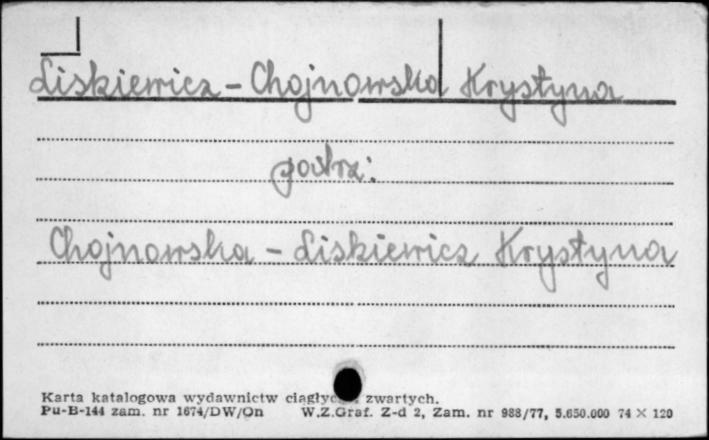 Liskiewicz - Chojnowska Krystyna
patrz:
Chojnowska - Liskiewicz Krystyna
Karta katalogowa wydawnictw zwartych.
Pu-B-144 zam. nr 1674/DW/On W.Z.Graf. Z-d 2, Zam. nr 988/77, 5.650.000 74 X 120